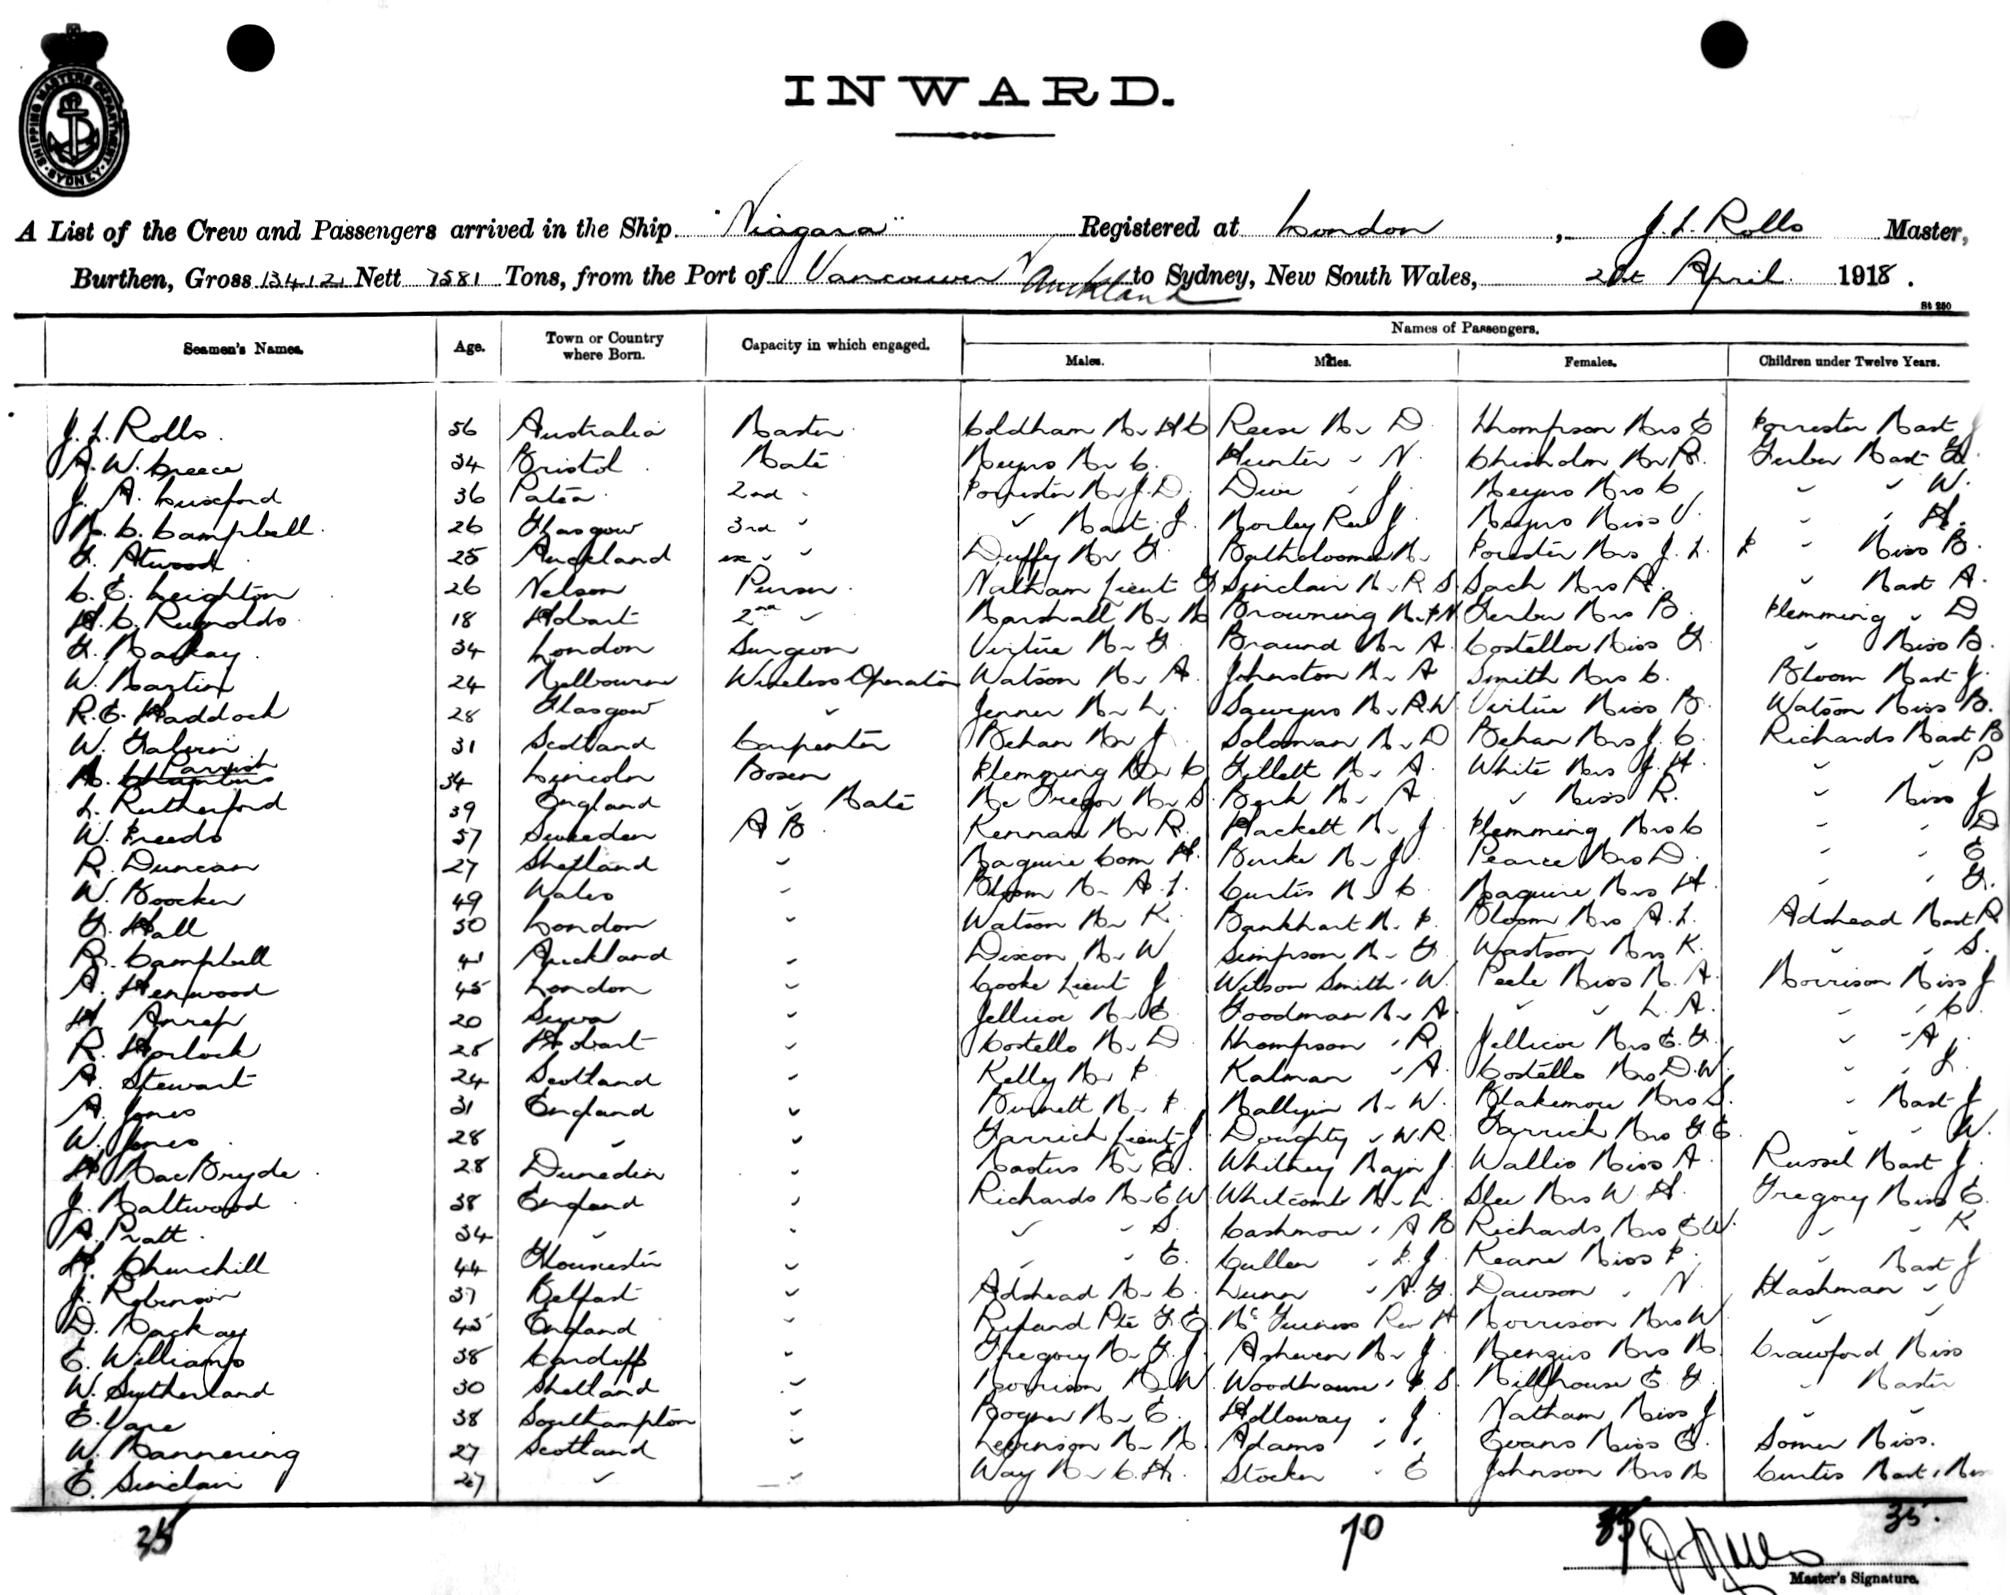 SHIPPING MASTERS DEPARTMENT
SYDNEY
INWARD.
A List of the Crew and Passengers arrived in the Ship "Niagara" Registered at London, J. L. Rolls Master,
Burthen, Gross 13412 Nett 7581 Tons, from the Port of Vancouver Auckland to Sydney, New South Wales, 21st April 1918.
St 250
Seamen's Names. Age. Town or Country where Born. Capacity in which engaged. Names of Passengers.
Males. Males. Females. Children under Twelve Years.
J. L. Rolls. 56 Australia Master Coldham Mr H C Reese Mr D. Thompson Mrs E Forrester Mast J
A. W. Creece 34 Bristol Mate Meyers Mr C. Hunter " N. Chisholm Mr R. Gerber Mast G.
J. A. Luxford 36 Patea 2nd " Forrester Mr J. D. " J. Meyers Mrs C " " W.
M. C. Campbell 26 Glasgow 3rd " " Mast. J. Morley Rev J. Meyers Miss V. " " H.
G. Atwood 25 Auckland " " Duffy Mr G. Mr Mrs J. L. " Miss B.
C. E. Leighton 26 Nelson Purser Natham Lieut G Sinclair Mr R S. Sach Mrs A. " Mast A.
H. C. Reynolds 18 Hobart 2nd " Marshall Mr M Browning Mr F N. Gerber Mrs B. Flemming " D
G. Mackay 34 London Surgeon Virtue Mr G. Braund Mr A. Costelloe Miss G. " Miss B.
W. Martin 24 Melbourne Wireless Operator Watson Mr A. Johnston Mr A Smith Mrs C. Bloom Mast J.
R. E. Haddock 28 Glasgow " Jenner Mr L. Sawyers Mr R. W. Virtue Miss B. Watson Miss B.
W. Galvin 31 Scotland Carpenter Behan Mr J. Soloman Mr D Behan Mrs J. C. Richards Mast B
A. Parrish 34 Lincoln Bosun Flemming Mr C Gillett Mr A. White Mrs J. H. " " P
L. Rutherford 39 England " Mate Mc Gregor Mr S. Berk Mr A. " Miss R. " Miss J
W. Freeds 57 Sweeden A B. Kennan Mr R. Hackett Mr J. Flemming Mrs C " " D
R. Duncan 27 Shetland " Maguire Com H. Burke Mr J. Pearce Mrs D. " " E
W. Boocker 49 Wales " Bloom Mr A. L. Curtis Mr C. Maguire Mrs H. " " G.
G. Hall 50 London " Watson Mr K. Bankhart Mr F. Bloom Mrs A. L. Adshead Mast R
R. Campbell 41 Auckland " Dixon Mr W Simpson Mr G. Wastson Mrs K. " " S.
A. Henwood 45 London " Cooke Lieut J. Wilson Smith " W. Peele Miss M. A. Morrison Miss J
H Anrep 20 Suva " Jellicoe Mr E. Goodman Mr A. " " L. A. " " C.
R. Horlock 25 Hobart " Costello Mr D. Thompson " R. Jellicoe Mrs E. G. " " A.
A. Stewart 24 Scotland " Kelly Mr F. Kalman " A. Costello Mrs D. W. " " L.
A. Jones 31 England " Burnett Mr F. Mr W. Blakemore Mrs S. " Mast J
W. Jones 28 " " Garrick Lieut J. Doughty " W. R. Garrick Mrs G E. " " W.
H. MacBryde 28 Dunedin " Masters Mr E. Whitney Major J. Wallis Miss A. Russel Mast J.
J. Maltwood 38 England " Richards Mr E W Whitcomb Mr L. Slee Mrs W. H. Gregory Miss E.
A. Pratt. 34 " " " " S. Cashmore " A B Richards Mrs E W. " " K
H. Churchill 44 Gloucester " " " E. Cullen " F. J. Keane Miss F. " Mast J
J. Robinson 37 Belfast " Adshead Mr C. Lunn " A. G. Dawson " N. Hashman "
D. Mackay 45 England " Pte G. E. Mc Guiness Rev H Morrison Mrs W. " "
E. Williams 38 Cardiff " Gregory Mr G. J. Mr J. Menzies Mrs M Crawford Miss
W. Sutherland 30 Shetland " Morrison Mr W. Woodhouse " F S. Millhouse E. G. " Master
E. Vare 38 Southampton " Bogner Mr E. Holloway " J. Natham Miss J " "
W. Mannering 27 Scotland " Levenson Mr M. Adams " " Evans Miss E. Somer Miss.
E. Sinclair 27 " " Way Mr C. H. Stocker " E Johnson Mrs M Curtis Mast. " Miss
35 70 35 35.
J. Rolls
Master's Signature.